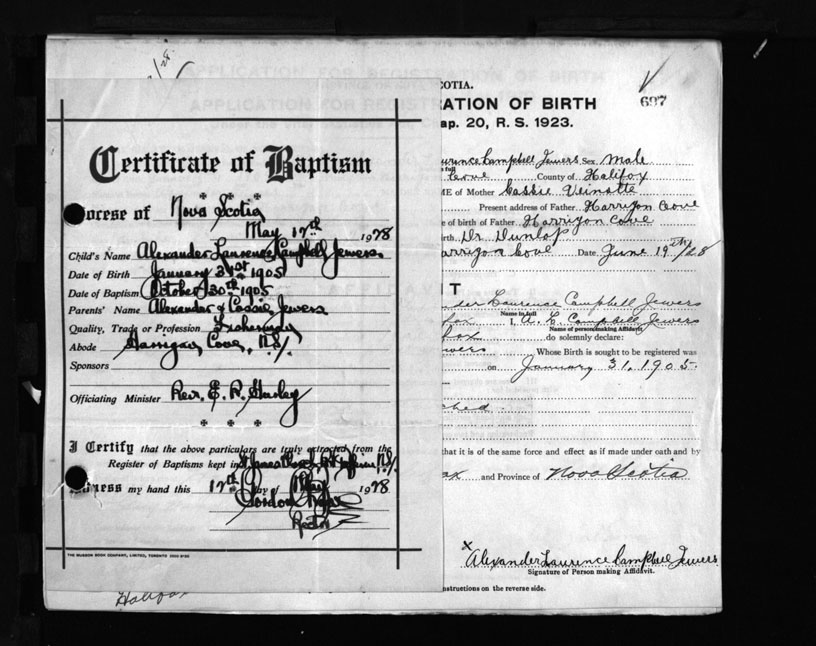 Certificate of Baptism
ocese of Nova Scotia
May 17th 1928
Child's Name Alexander Laurence Campbell Jewers
Date of Birth January 31st 1905
Date of Baptism October 30th 1905
Parents' Name Alexander & Cassie Jewers
Quality, Trade or Profession Fisherman
Abode Harrigan Cove, N.S.
Sponsors
Officiating Minister Rev. E. R.
I Certify that the above particulars are truly extracted from the
Register of Baptisms kept in St James Church N.S.
ness my hand this 17th day of May 1928
Gordon
Rector
THE MUSSON BOOK COMPANY, LIMITED, TORONTO
Halifax
COTIA.
697
ATION OF BIRTH
ap. 20, R. S. 1923.
urence Campbell Jewers Sex Male
n full
County of Halifax
ME of Mother Cassie Veinotte
Present address of Father Harrigan Cove
e of birth of Father Harrigan Cove
rth Dr. Dunlop
arrigan Cove Date June 19th/28
T
nder Laurence Campbell Jewers
Name in full
fax I, A. L. Campbell Jewers
Name of person making Affidavit.
fax do solemnly declare:
ewers Whose Birth is sought to be registered was
on January 31, 1905.
ched
that it is of the same force and effect as if made under oath and by
ax and Province of Nova Scotia
x Alexander Laurence Campbell Jewers
Signature of Person making Affidavit.
nstructions on the reverse side.